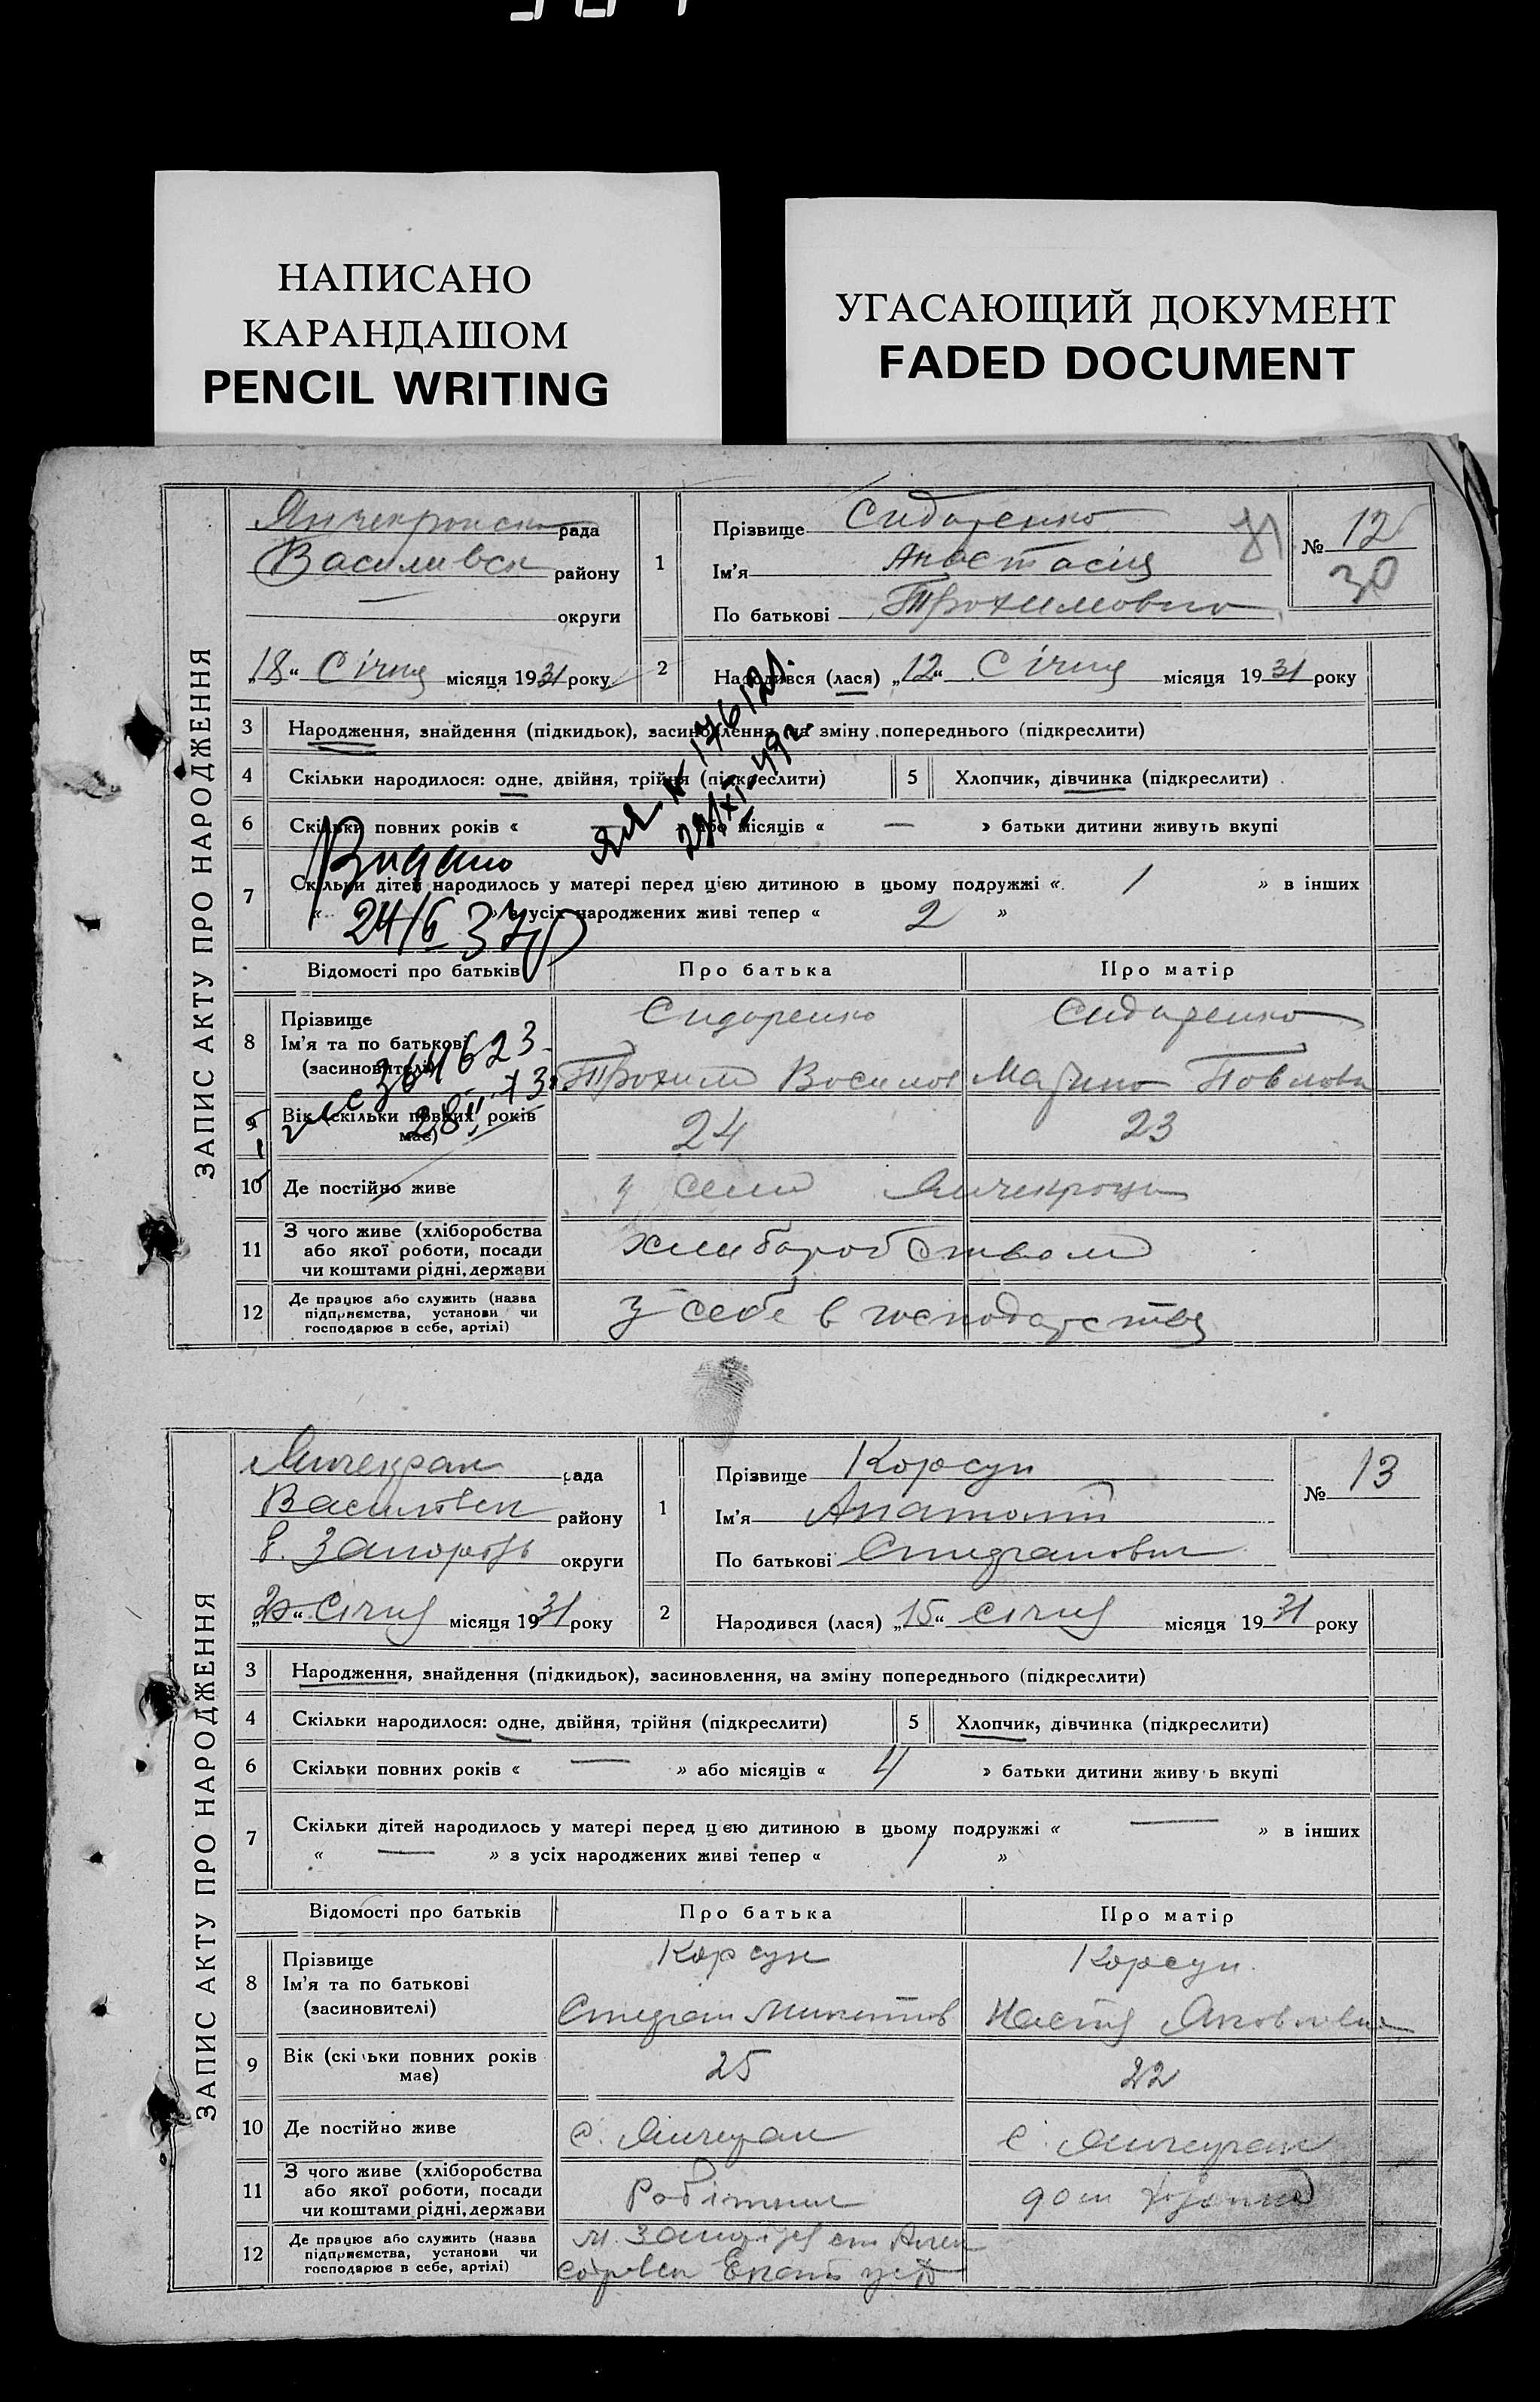 НАПИСАНО
КАРАНДАШОМ
PENCIL WRITING
УГАСАЮЩИЙ ДОКУМЕНТ
FADED DOCUMENT
ЗАПИС АКТУ ПРО НАРОДЖЕННЯ
рада
Василивск району
округи
„18“ Січня місяця 1931 року
1
Прізвище Сидоренко
Ім'я Анастасія
По батькові Трохимовна
№ 12
30
2 Народився (лася) „12“ Січня місяця 1931 року
3 Народження, знайдення (підкидьок), засиновлення, на зміну попереднього (підкреслити)
4 Скільки народилося: одне, двійня, трійня (підкреслити) 5 Хлопчик, дівчинка (підкреслити)
6 Скільки повних років « або місяців « — » батьки дитини живуть вкупі
7 Скільки дітей народилось у матері перед цією дитиною в цьому подружжі « 1 » в інших
« » з усіх народжених живі тепер « 2 »
Видано
24/6 37р
Відомості про батьків Про батька Про матір
8 Прізвище
Ім'я та по батькові
(засиновителі)
Сидоренко Сидоренко
Трохим Восилов Марина Повловн
9 Вік (скільки повних років має) 24 23
10 Де постійно живе у селі Янчекроци
11 З чого живе (хліборобства
або якої роботи, посади
чи коштами рідні, держави
хлиборобством
12 Де працює або служить (назва
підприємства, установи чи
господарює в себе, артілі)
У себе в господарстві
ЗАПИС АКТУ ПРО НАРОДЖЕННЯ
Янчекрак рада
Василівск району
округи
„20“ Січня місяця 1931 року
1
Прізвище Корсун
Ім'я Анатолій
По батькові Степанович
№ 13
2 Народився (лася) „15“ січня місяця 1931 року
3 Народження, знайдення (підкидьок), засиновлення, на зміну попереднього (підкреслити)
4 Скільки народилося: одне, двійня, трійня (підкреслити) 5 Хлопчик, дівчинка (підкреслити)
6 Скільки повних років « — » або місяців « 4 » батьки дитини живуть вкупі
7 Скільки дітей народилось у матері перед цією дитиною в цьому подружжі « — » в інших
« — » з усіх народжених живі тепер « 1 »
Відомості про батьків Про батька Про матір
8 Прізвище
Ім'я та по батькові
(засиновителі)
Корсун Корсун
Степан Микитов Настя Яковлевна
9 Вік (скільки повних років має) 25 22
10 Де постійно живе с. Янчекрак с. Янчекрак
11 З чого живе (хліборобства
або якої роботи, посади
чи коштами рідні, держави
Робітник
12 Де працює або служить (назва
підприємства, установи чи
господарює в себе, артілі)